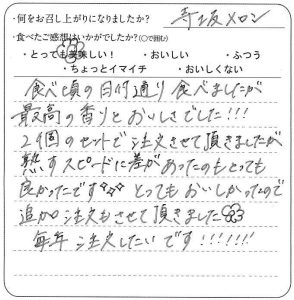 ・何をお召し上がりになりましたか？ 寺坂メロン
・食べたご感想はいかがでしたか？(○で囲む)
・とっても美味しい！ ・おいしい ・ふつう
・ちょっとイマイチ ・おいしくない
食べ頃の日付通り食べましたが
最高の香りとおいしさでした!!!
2個のセットで注文させて頂きましたが
熟すスピードに差があったのもとても
良かったです とってもおいしかったので
追加注文もさせて頂きました
毎年注文したいです!!!!!!